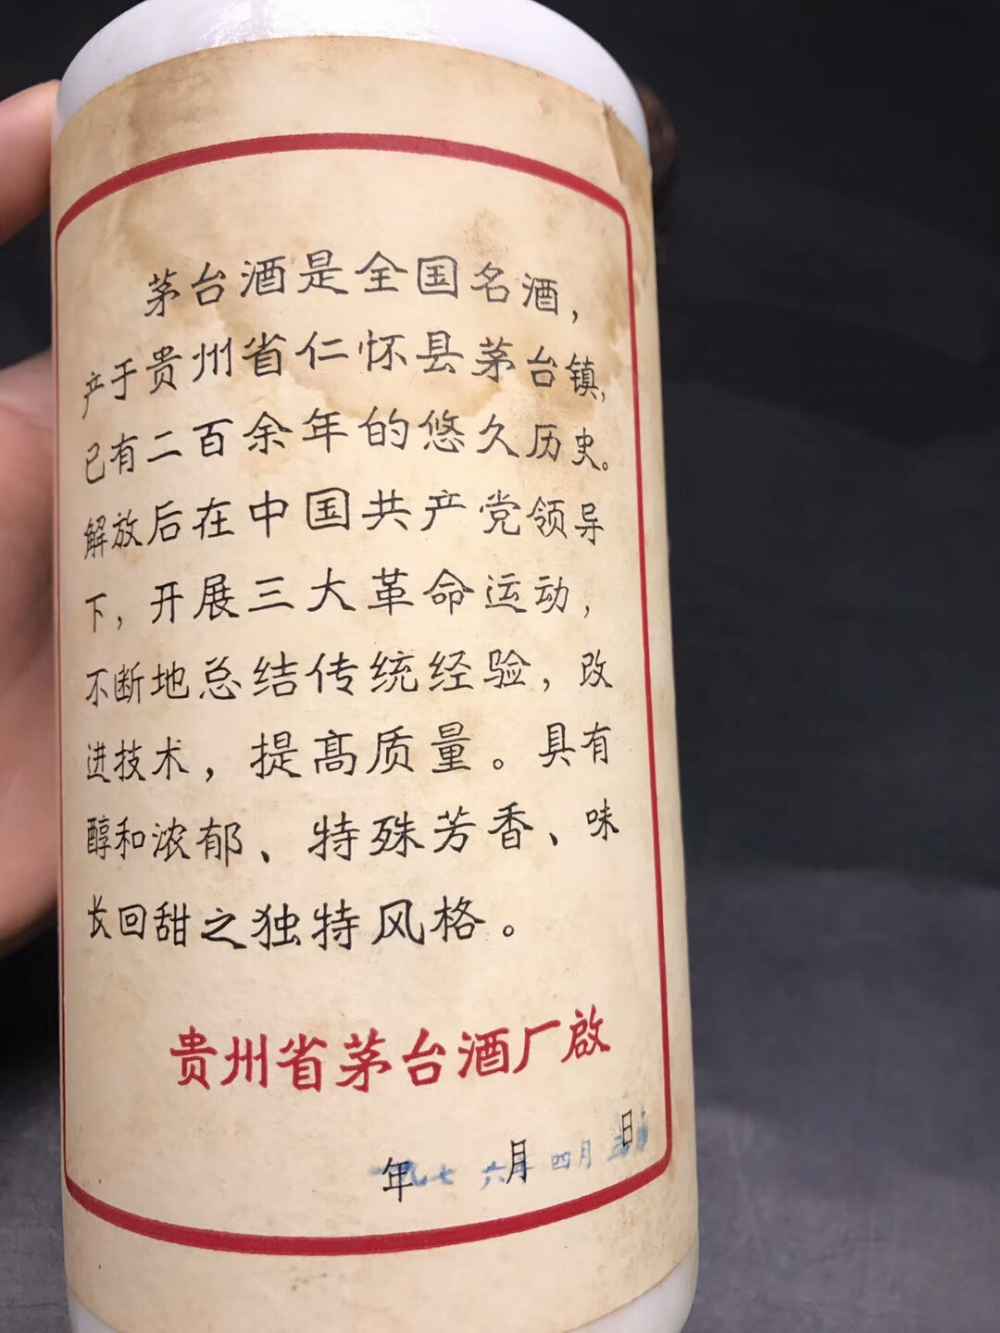 茅台酒是全国名酒，
产于贵州省仁怀县茅台镇，
已有二百余年的悠久历史。
解放后在中国共产党领导
下，开展三大革命运动，
不断地总结传统经验，改
进技术，提高质量。具有
醇和浓郁、特殊芳香、味
长回甜之独特风格。
贵州省茅台酒厂啟
年 月 日
一九七六年四月